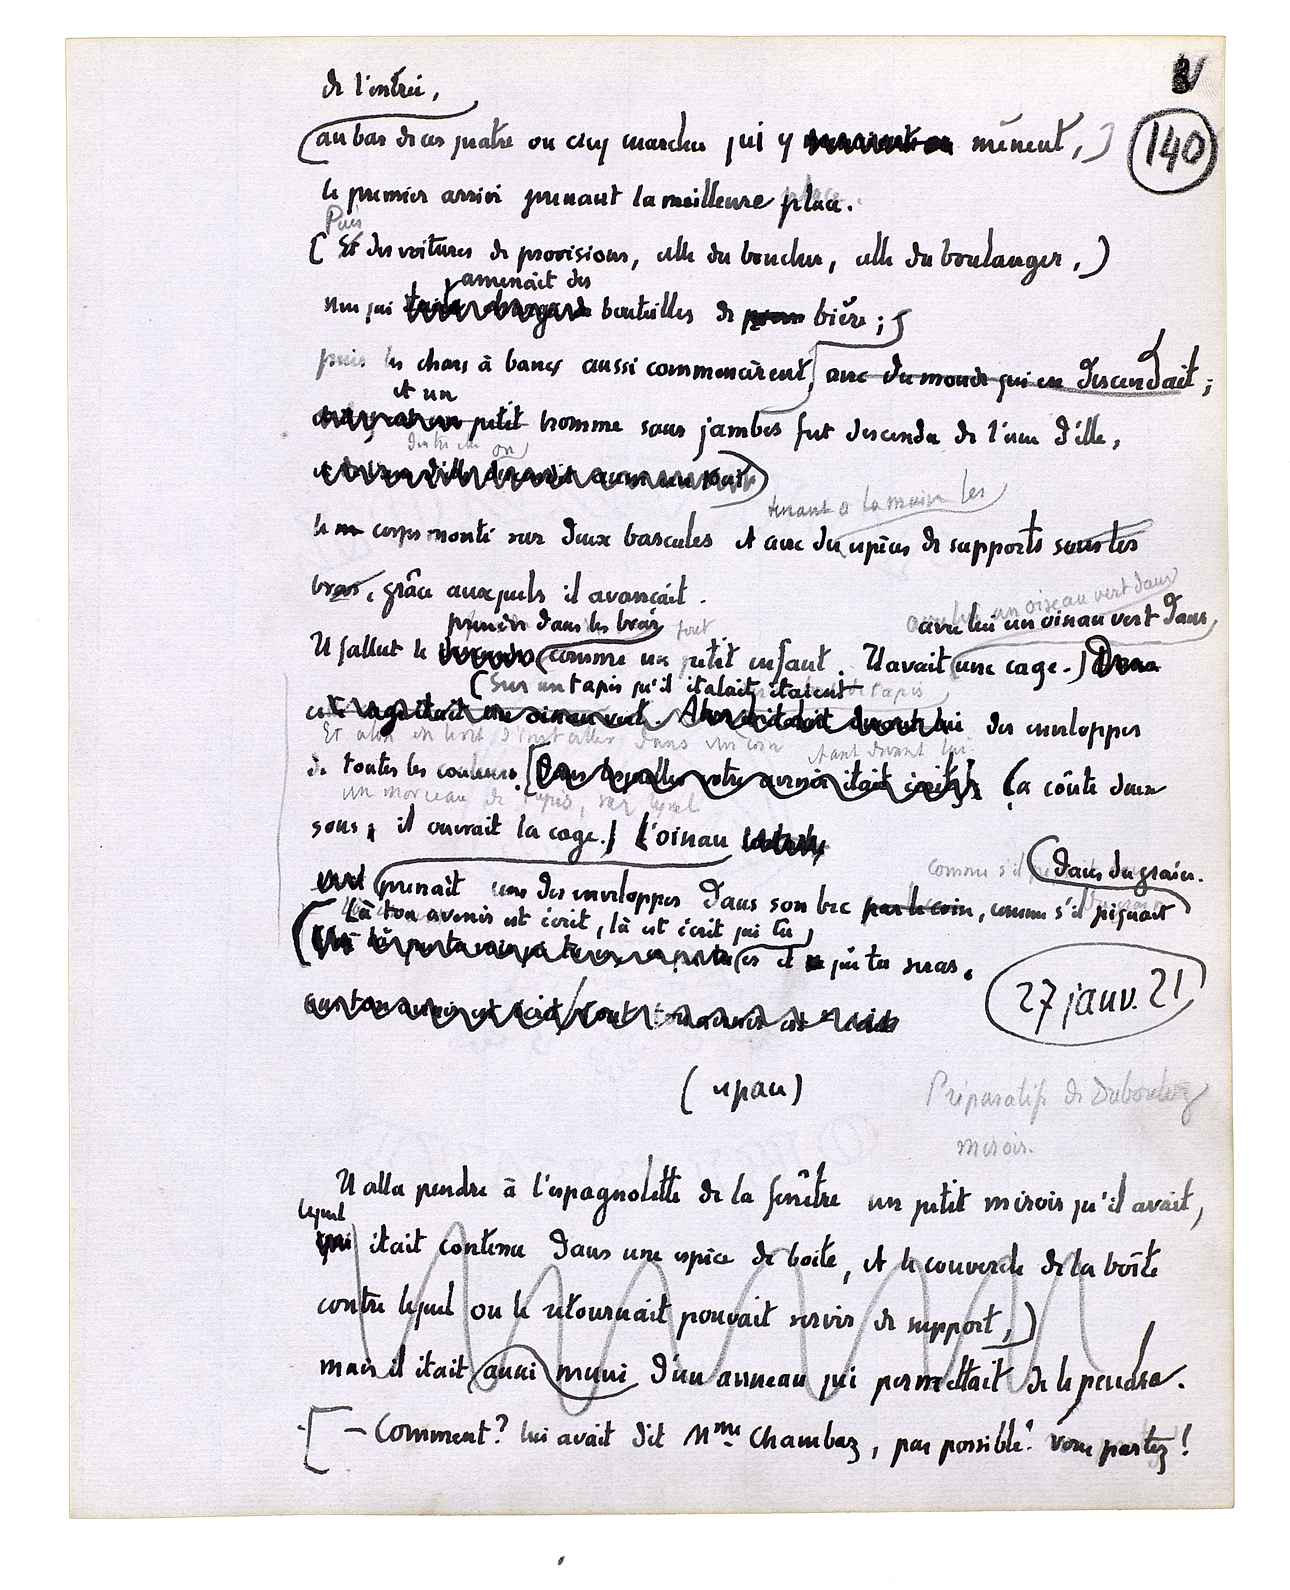 de l'entrée,
140
(au bas de ces quatre ou cinq marches qui y mènent,)
le premier arrivé prenant la meilleure place.
Puis
(Et des voitures de provisions, celle du boucher, celle du boulanger,)
amenait des
une qui bouteilles de bière;
puis les chars à bancs aussi commencèrent, avec du monde qui en descendait;
et un
petit homme sans jambes fut descendu de l'une d'elle,
tenant à la main les
le corps monté sur deux bascules et avec des espèces de supports sous les
bras, grâce auxquels il avançait.
avec lui un oiseau vert dans
prendre dans les bras
Il fallut le (comme un petit enfant. Il avait une cage.)
(Sur un tapis qu'il étalait, étaient
des enveloppes
Et alors on le vit s'installer dans un coin
étant devant lui
de toutes les couleurs. [Dans lesquelles votre avenir était écrit] Ça coûte deux
un morceau de tapis, sur lequel
sous; il ouvrait la cage. L'oiseau
comme s'il (dans du grain.
prenait une des enveloppes dans son bec par le coin, comme s'il piquait
Là ton avenir est écrit, là est écrit qui tu
es et qui tu seras.
27 janv. 21
(espace)
Préparatifs de Duboulez
miroir.
Il alla pendre à l'espagnolette de la fenêtre un petit miroir qu'il avait,
lequel
qui était contenu dans une espèce de boîte, et le couvercle de la boîte
contre lequel on le retournait pouvait servir de support,)
mais il était aussi muni d'un anneau qui permettait de le pendre.
[ – Comment? lui avait dit Mme Chambaz, pas possible! vous partez!